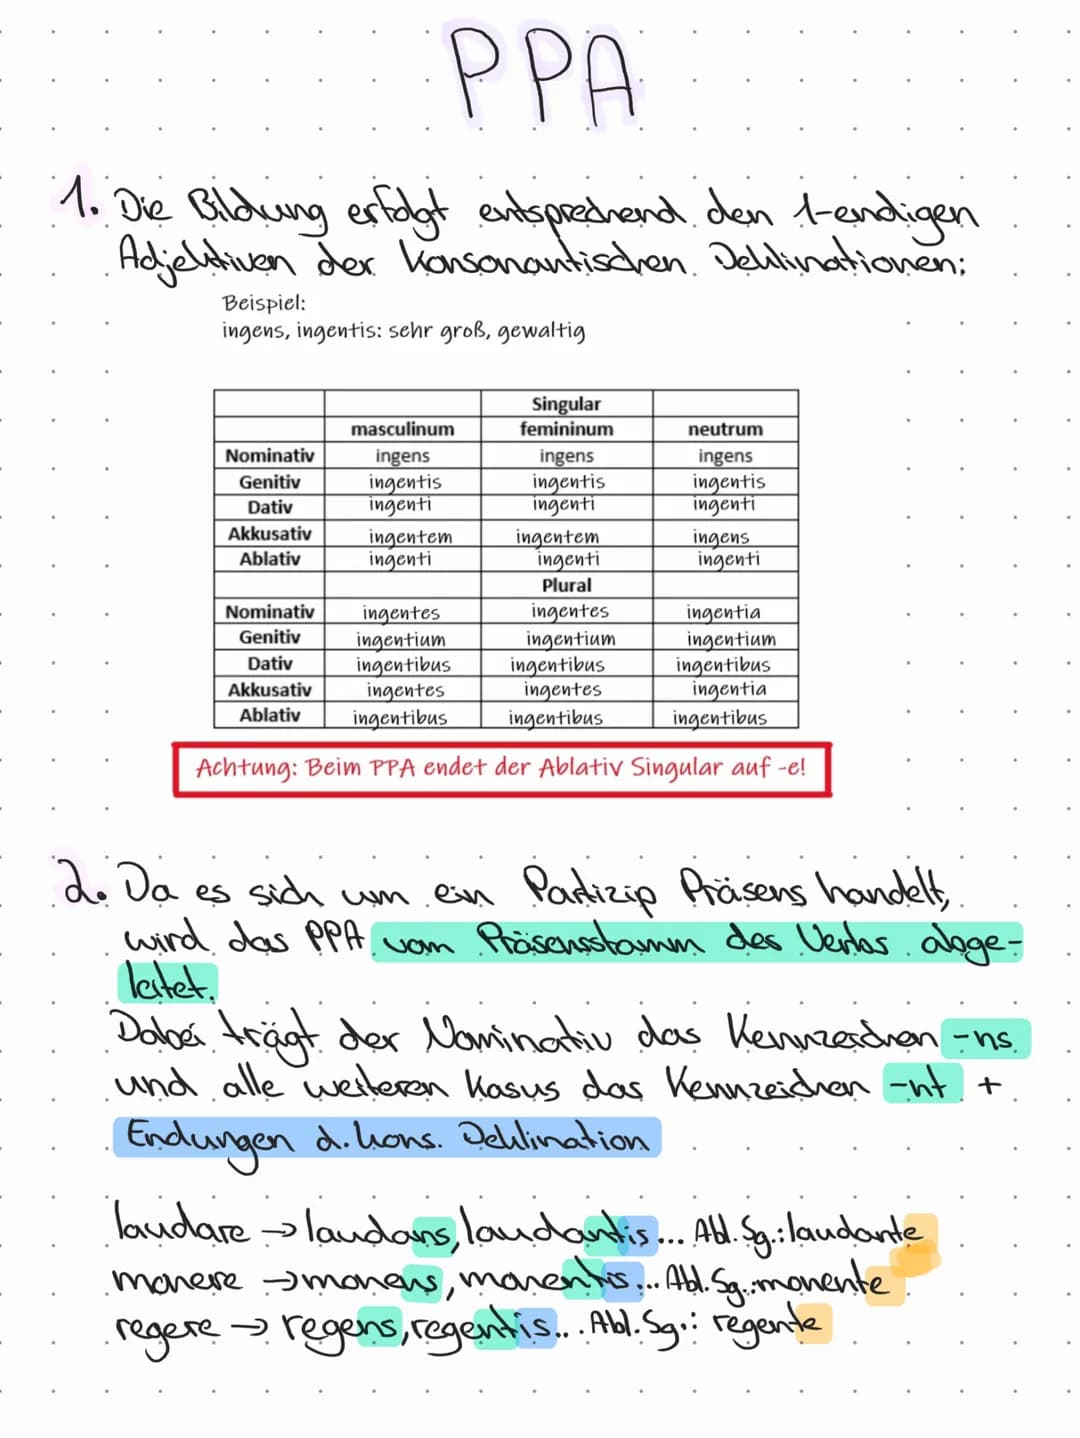 PPA
1. Die Bildung erfolgt entsprechend den 1-endigen
Adjektiven der Konsonantischen Deklinationen:
Beispiel:
ingens, ingentis: sehr groß, gewaltig
Singular
masculinum femininum neutrum
Nominativ ingens ingens ingens
Genitiv ingentis ingentis ingentis
Dativ ingenti ingenti ingenti
Akkusativ ingentem ingentem ingens
Ablativ ingenti ingenti ingenti
Plural
Nominativ ingentes ingentes ingentia
Genitiv ingentium ingentium ingentium
Dativ ingentibus ingentibus ingentibus
Akkusativ ingentes ingentes ingentia
Ablativ ingentibus ingentibus ingentibus
Achtung: Beim PPA endet der Ablativ Singular auf -e!
2. Da es sich um ein Partizip Präsens handelt,
wird das PPA vom Präsensstamm des Verbs abge-
leitet.
Dabei trägt der Nominativ das Kennzeichen -ns
und alle weiteren Kasus das Kennzeichen -nt +
Endungen d. kons. Deklination
laudare → laudans, laudantis... Abl. Sg.: laudante
monere → monens, monentis... Abl. Sg.: monente
regere → regens, regentis... Abl. Sg.: regente